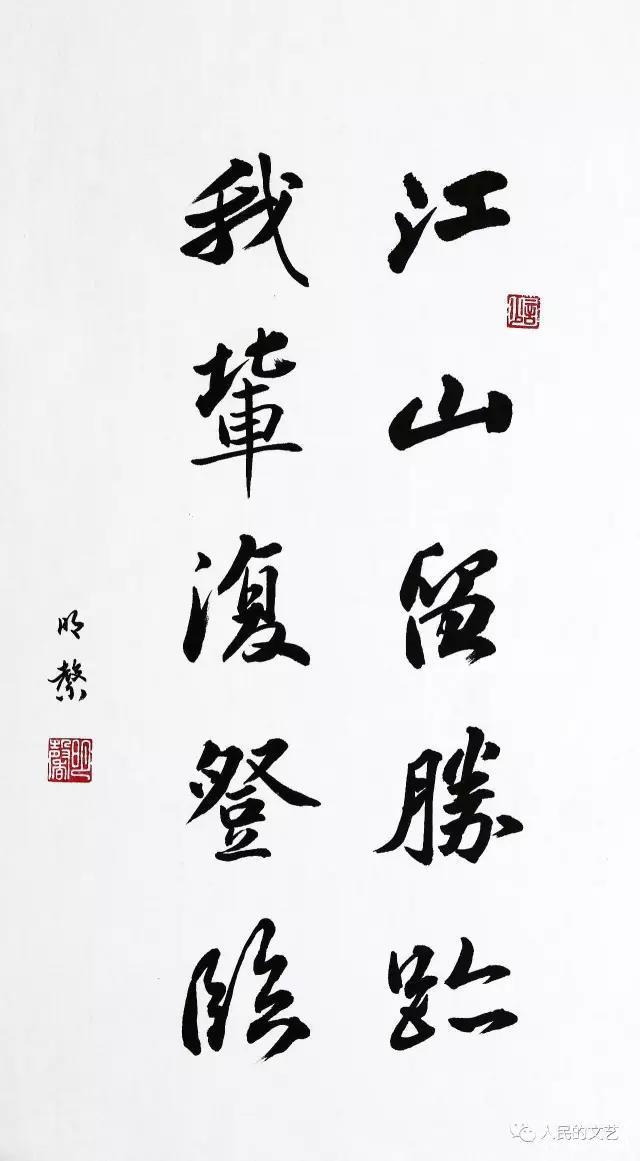 江山留勝跡
我輩復登臨
明馨
明馨
人民的文艺